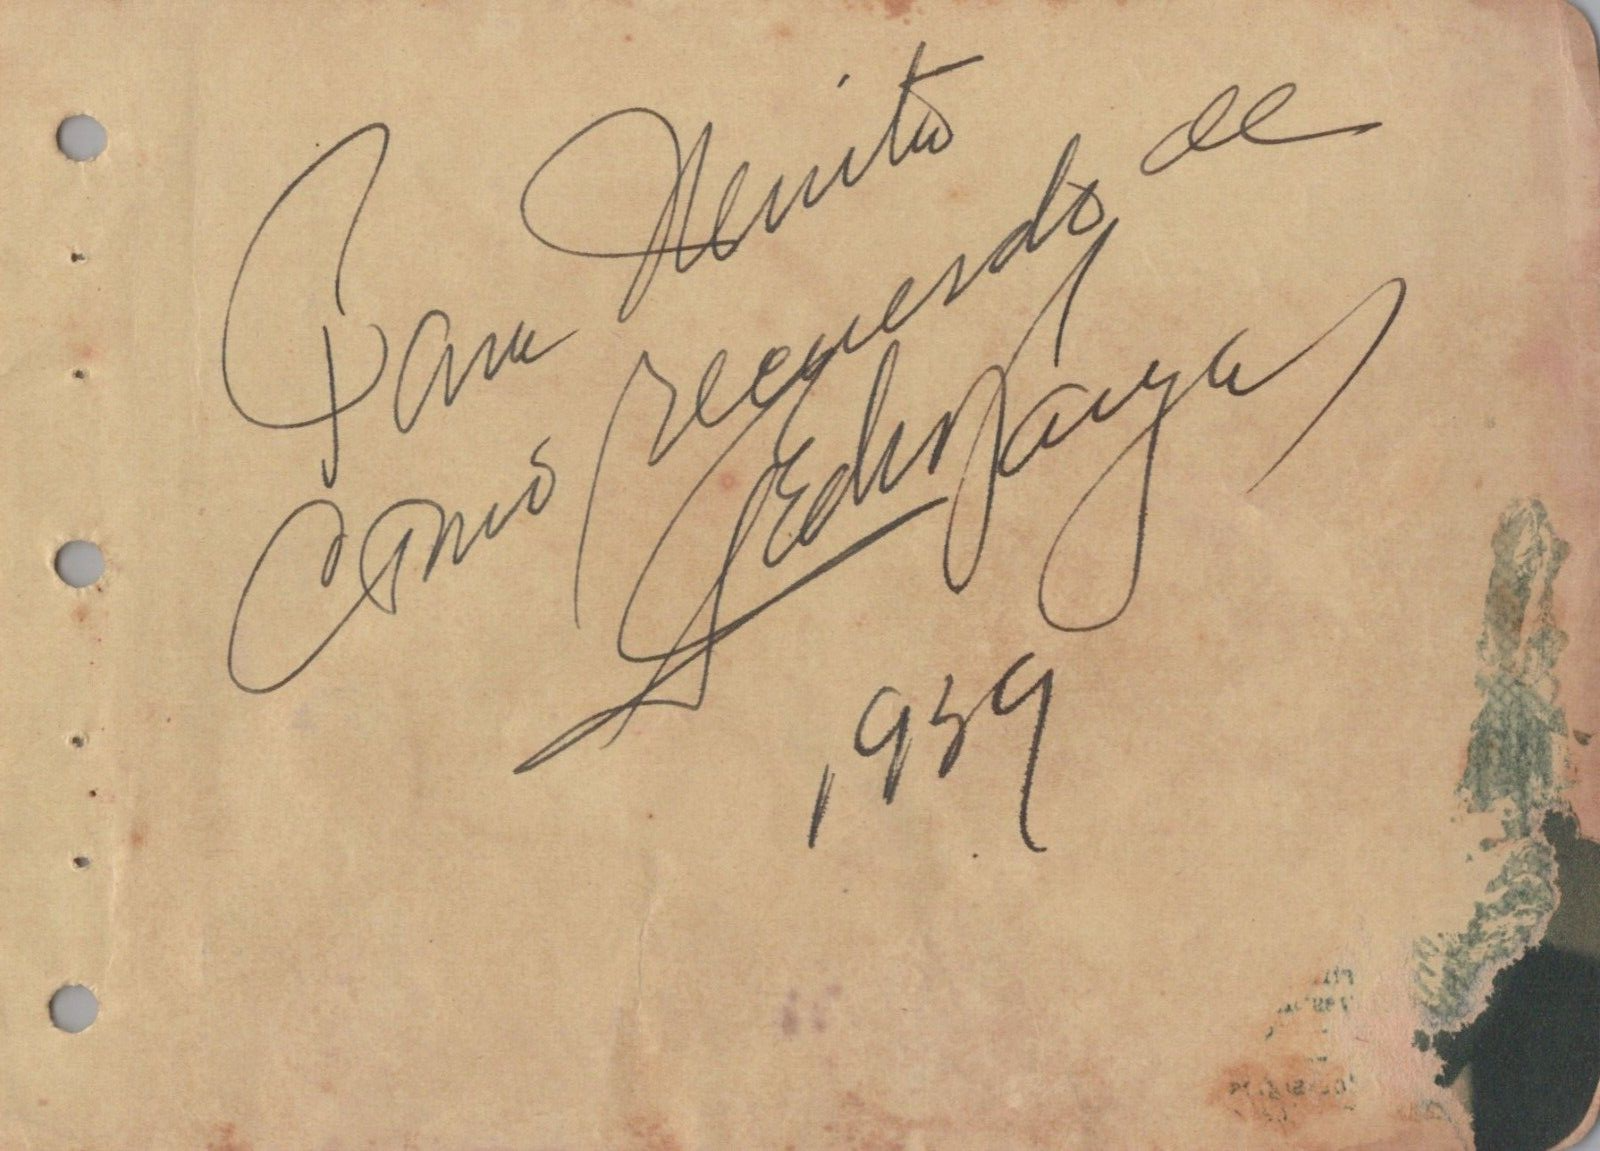 Para Nenito
como recuerdo de
Pedro Vargas
1939